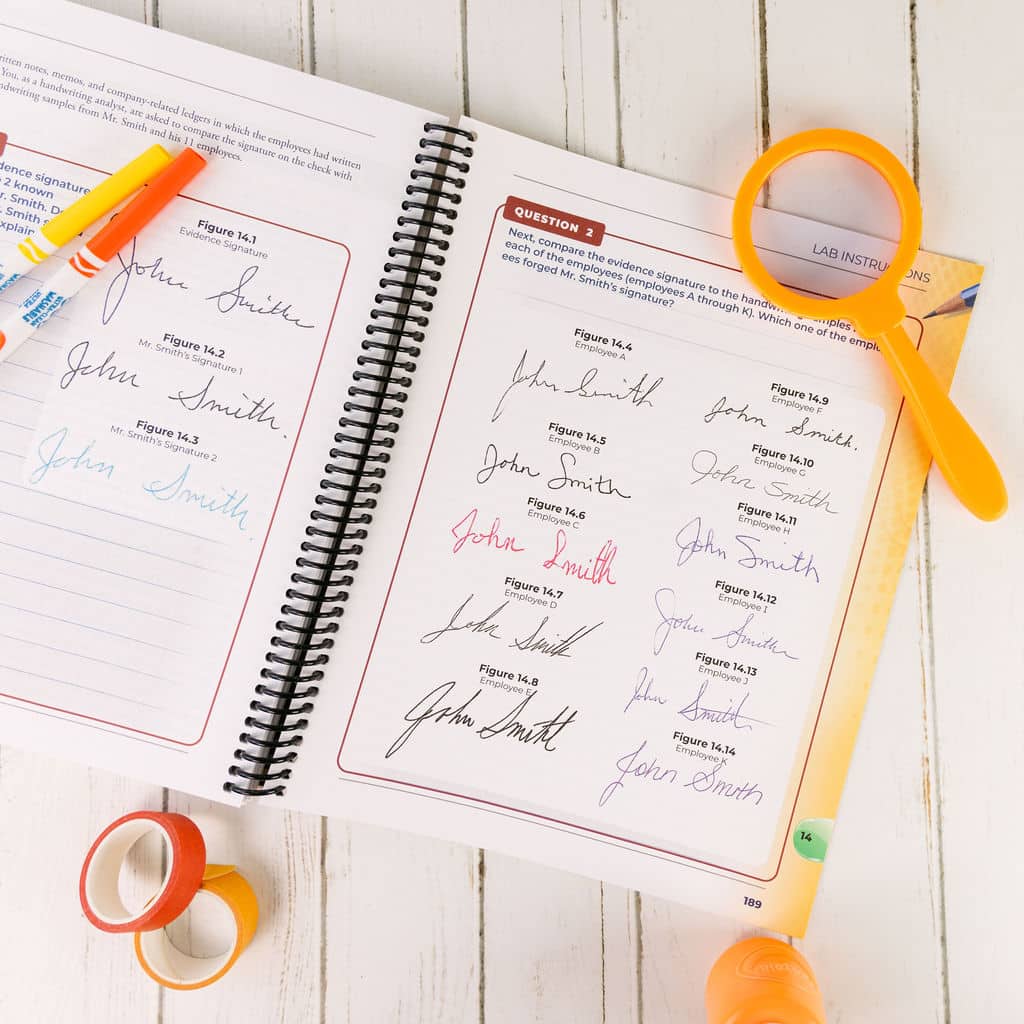 written notes, memos, and company-related ledgers in which the employees had written
You, as a handwriting analyst, are asked to compare the signature on the check with
handwriting samples from Mr. Smith and his 11 employees.
signature
2 known
Mr. Smith.
Smith
Figure 14.1
Evidence Signature
John Smith
Figure 14.2
Mr. Smith's Signature 1
John Smith.
Figure 14.3
Mr. Smith's Signature 2
John Smith.
WASHABLE
LAB INSTRUCTIONS
QUESTION 2
Next, compare the evidence signature to the
each of the employees (employees A through K). Which one of the
ees forged Mr. Smith's signature?
Figure 14.4
Employee A
John Smith
Figure 14.5
Employee B
John Smith
Figure 14.6
Employee C
John Smith
Figure 14.7
Employee D
John Smith
Figure 14.8
Employee E
John Smith
Figure 14.9
Employee F
John Smith.
Figure 14.10
Employee G
John Smith
Figure 14.11
Employee H
John Smith
Figure 14.12
Employee I
John Smith
Figure 14.13
Employee J
John Smith
Figure 14.14
Employee K
John Smith
14
189